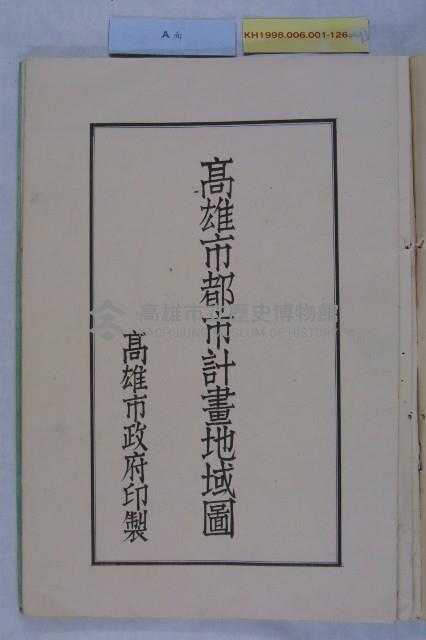 A面
KH1998.006.001-126
高雄市都市計畫地域圖
高雄市政府印製
高雄市立歷史博物館
KAOHSIUNG MUSEUM OF HISTORY